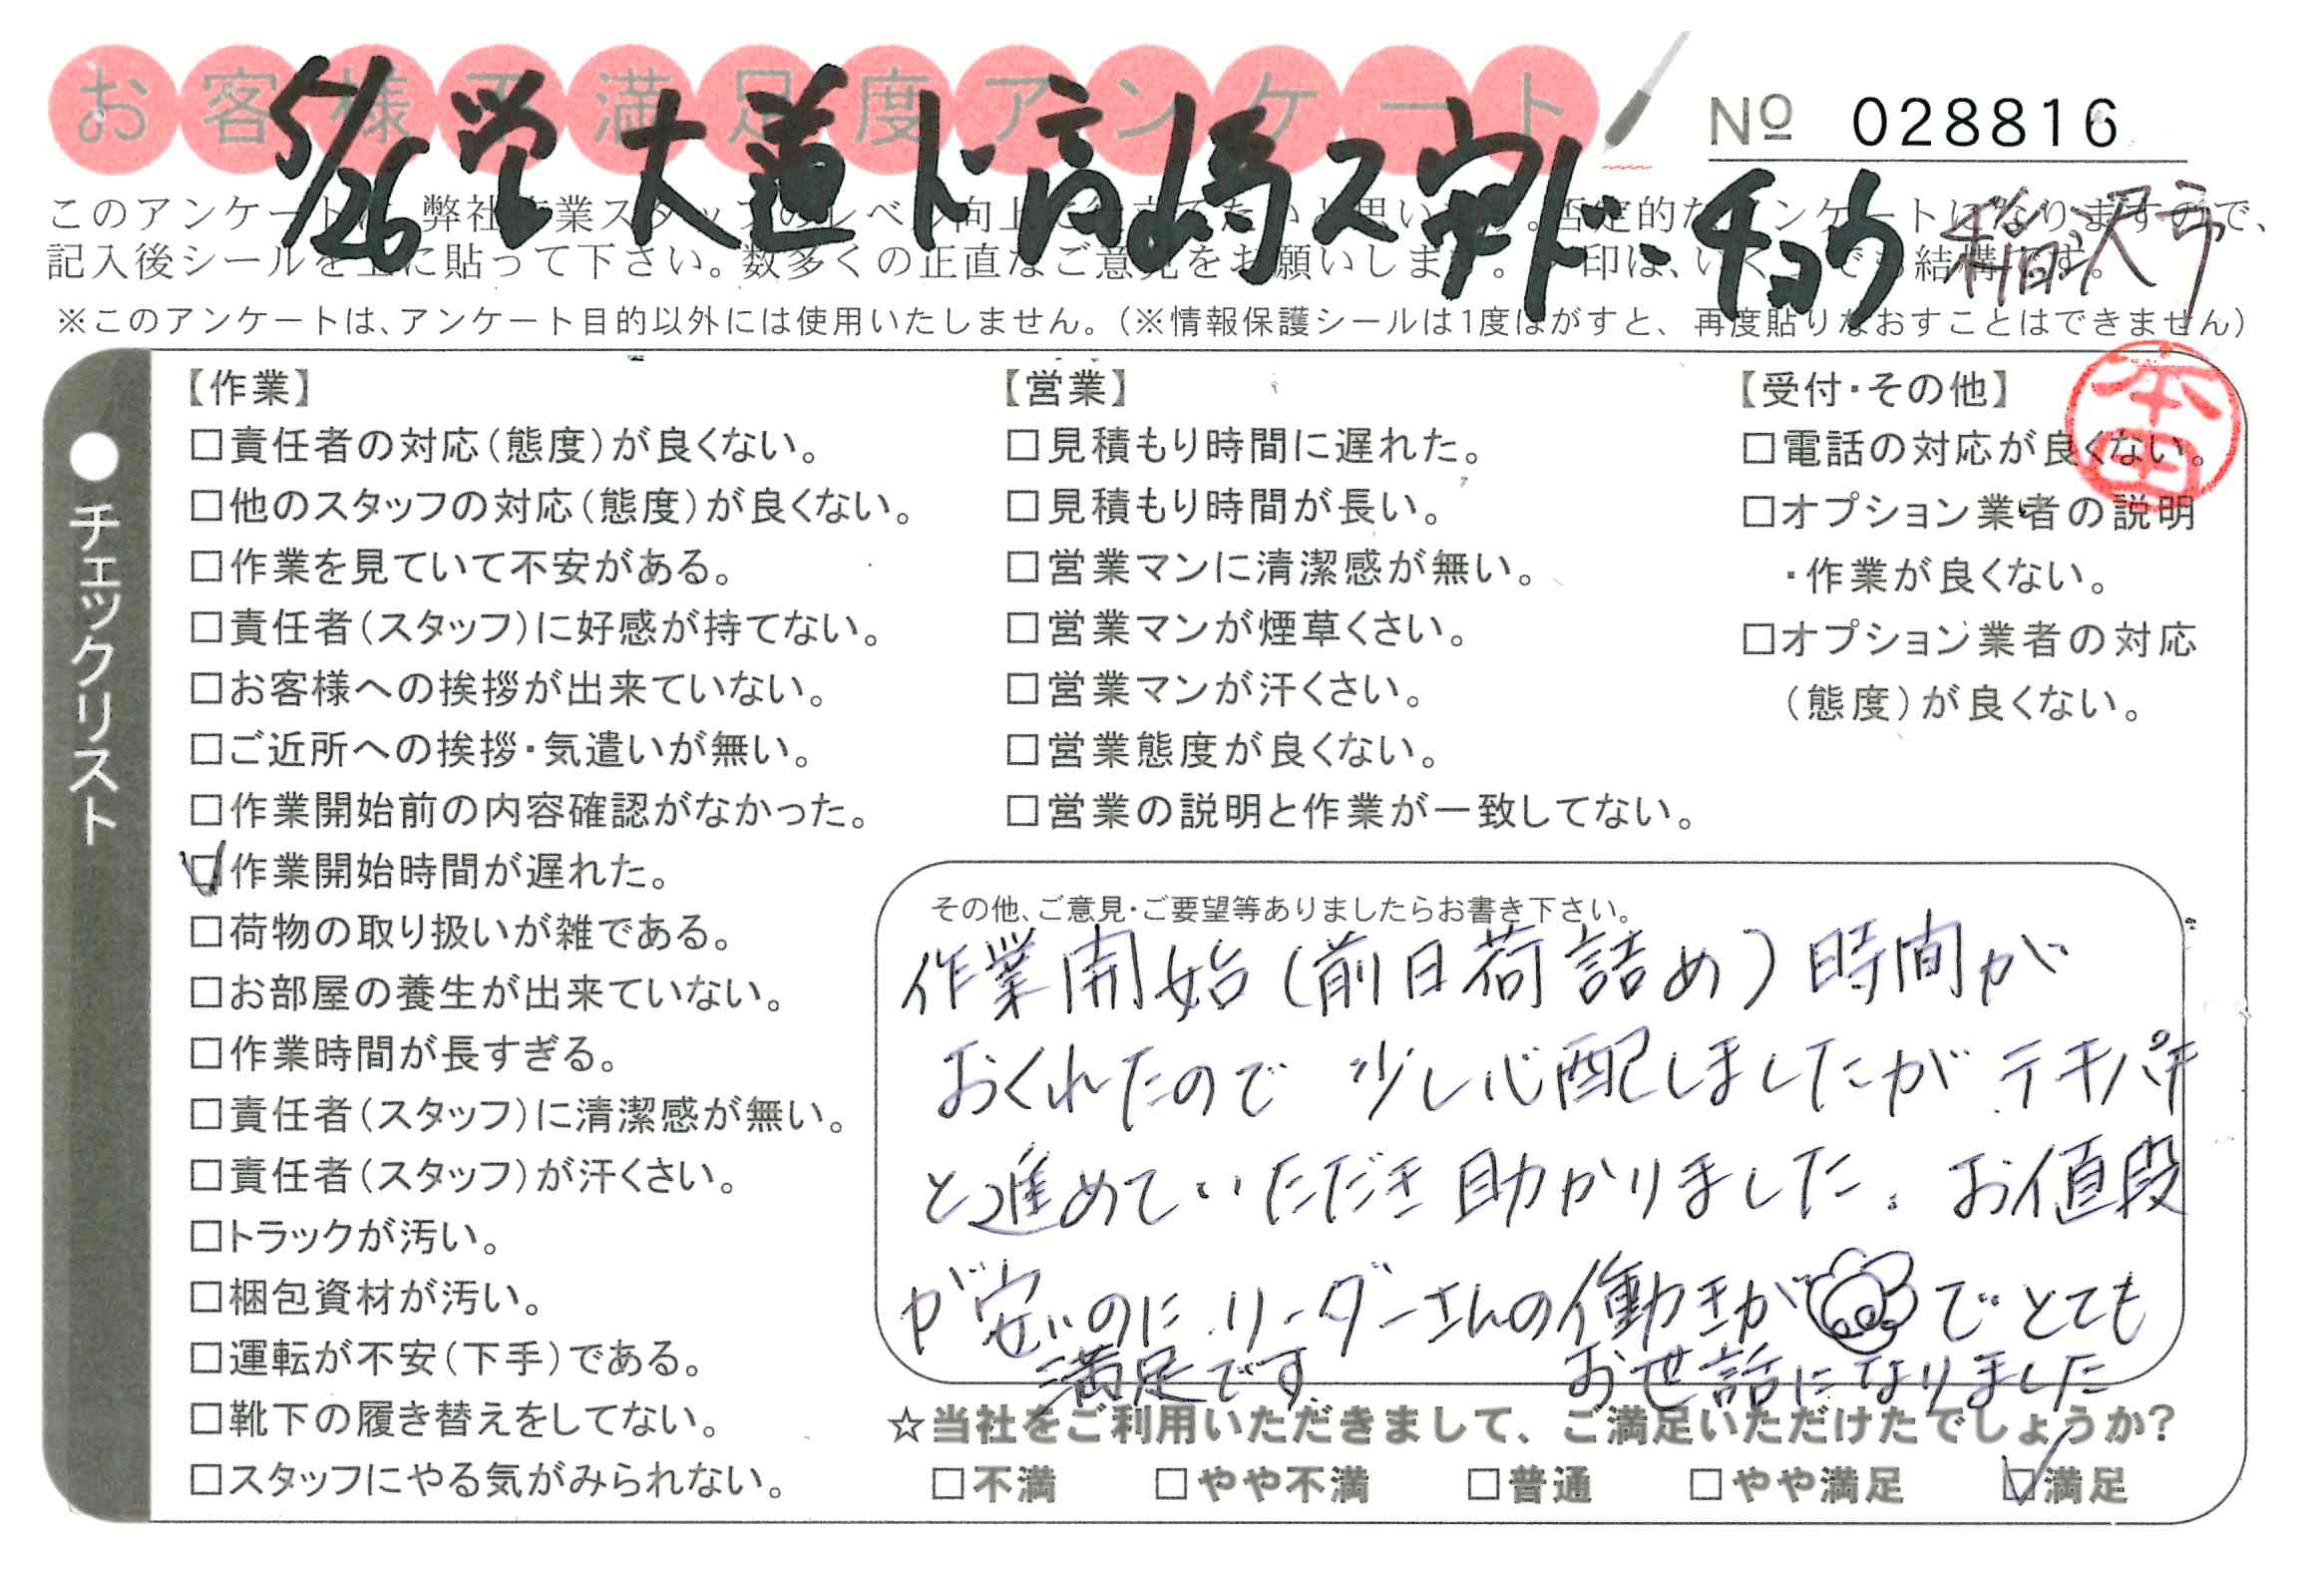 お客様不満足度アンケート
№ 028816
5/26 営 大道 ド高嶋 ス
ド・チョウ
稲沢市
このアンケートは、弊社作業スタッフのレベル向上に役立てたいと思います。否定的なアンケートになりますので、
記入後シールを上に貼って下さい。数多くの正直なご意見をお願いします。 印は、いくつでも結構です。
※このアンケートは、アンケート目的以外には使用いたしません。(※情報保護シールは1度はがすと、再度貼りなおすことはできません)
本田
●チェックリスト
【作業】
□責任者の対応(態度)が良くない。
□他のスタッフの対応(態度)が良くない。
□作業を見ていて不安がある。
□責任者(スタッフ)に好感が持てない。
□お客様への挨拶が出来ていない。
□ご近所への挨拶・気遣いが無い。
□作業開始前の内容確認がなかった。
☑作業開始時間が遅れた。
□荷物の取り扱いが雑である。
□お部屋の養生が出来ていない。
□作業時間が長すぎる。
□責任者(スタッフ)に清潔感が無い。
□責任者(スタッフ)が汗くさい。
□トラックが汚い。
□梱包資材が汚い。
□運転が不安(下手)である。
□靴下の履き替えをしてない。
□スタッフにやる気がみられない。
【営業】
□見積もり時間に遅れた。
□見積もり時間が長い。
□営業マンに清潔感が無い。
□営業マンが煙草くさい。
□営業マンが汗くさい。
□営業態度が良くない。
□営業の説明と作業が一致してない。
【受付・その他】
□電話の対応が良くない。
□オプション業者の説明
・作業が良くない。
□オプション業者の対応
(態度)が良くない。
その他、ご意見・ご要望等ありましたらお書き下さい。
作業開始(前日荷詰め)時間が
おくれたので 少し心配しましたが テキパキ
と進めていただき 助かりました。お値段
が安いのに リーダーさんの働きが でとても
満足です。 お世話になりました
☆当社をご利用いただきまして、ご満足いただけたでしょうか?
□不満 □やや不満 □普通 □やや満足 ☑満足